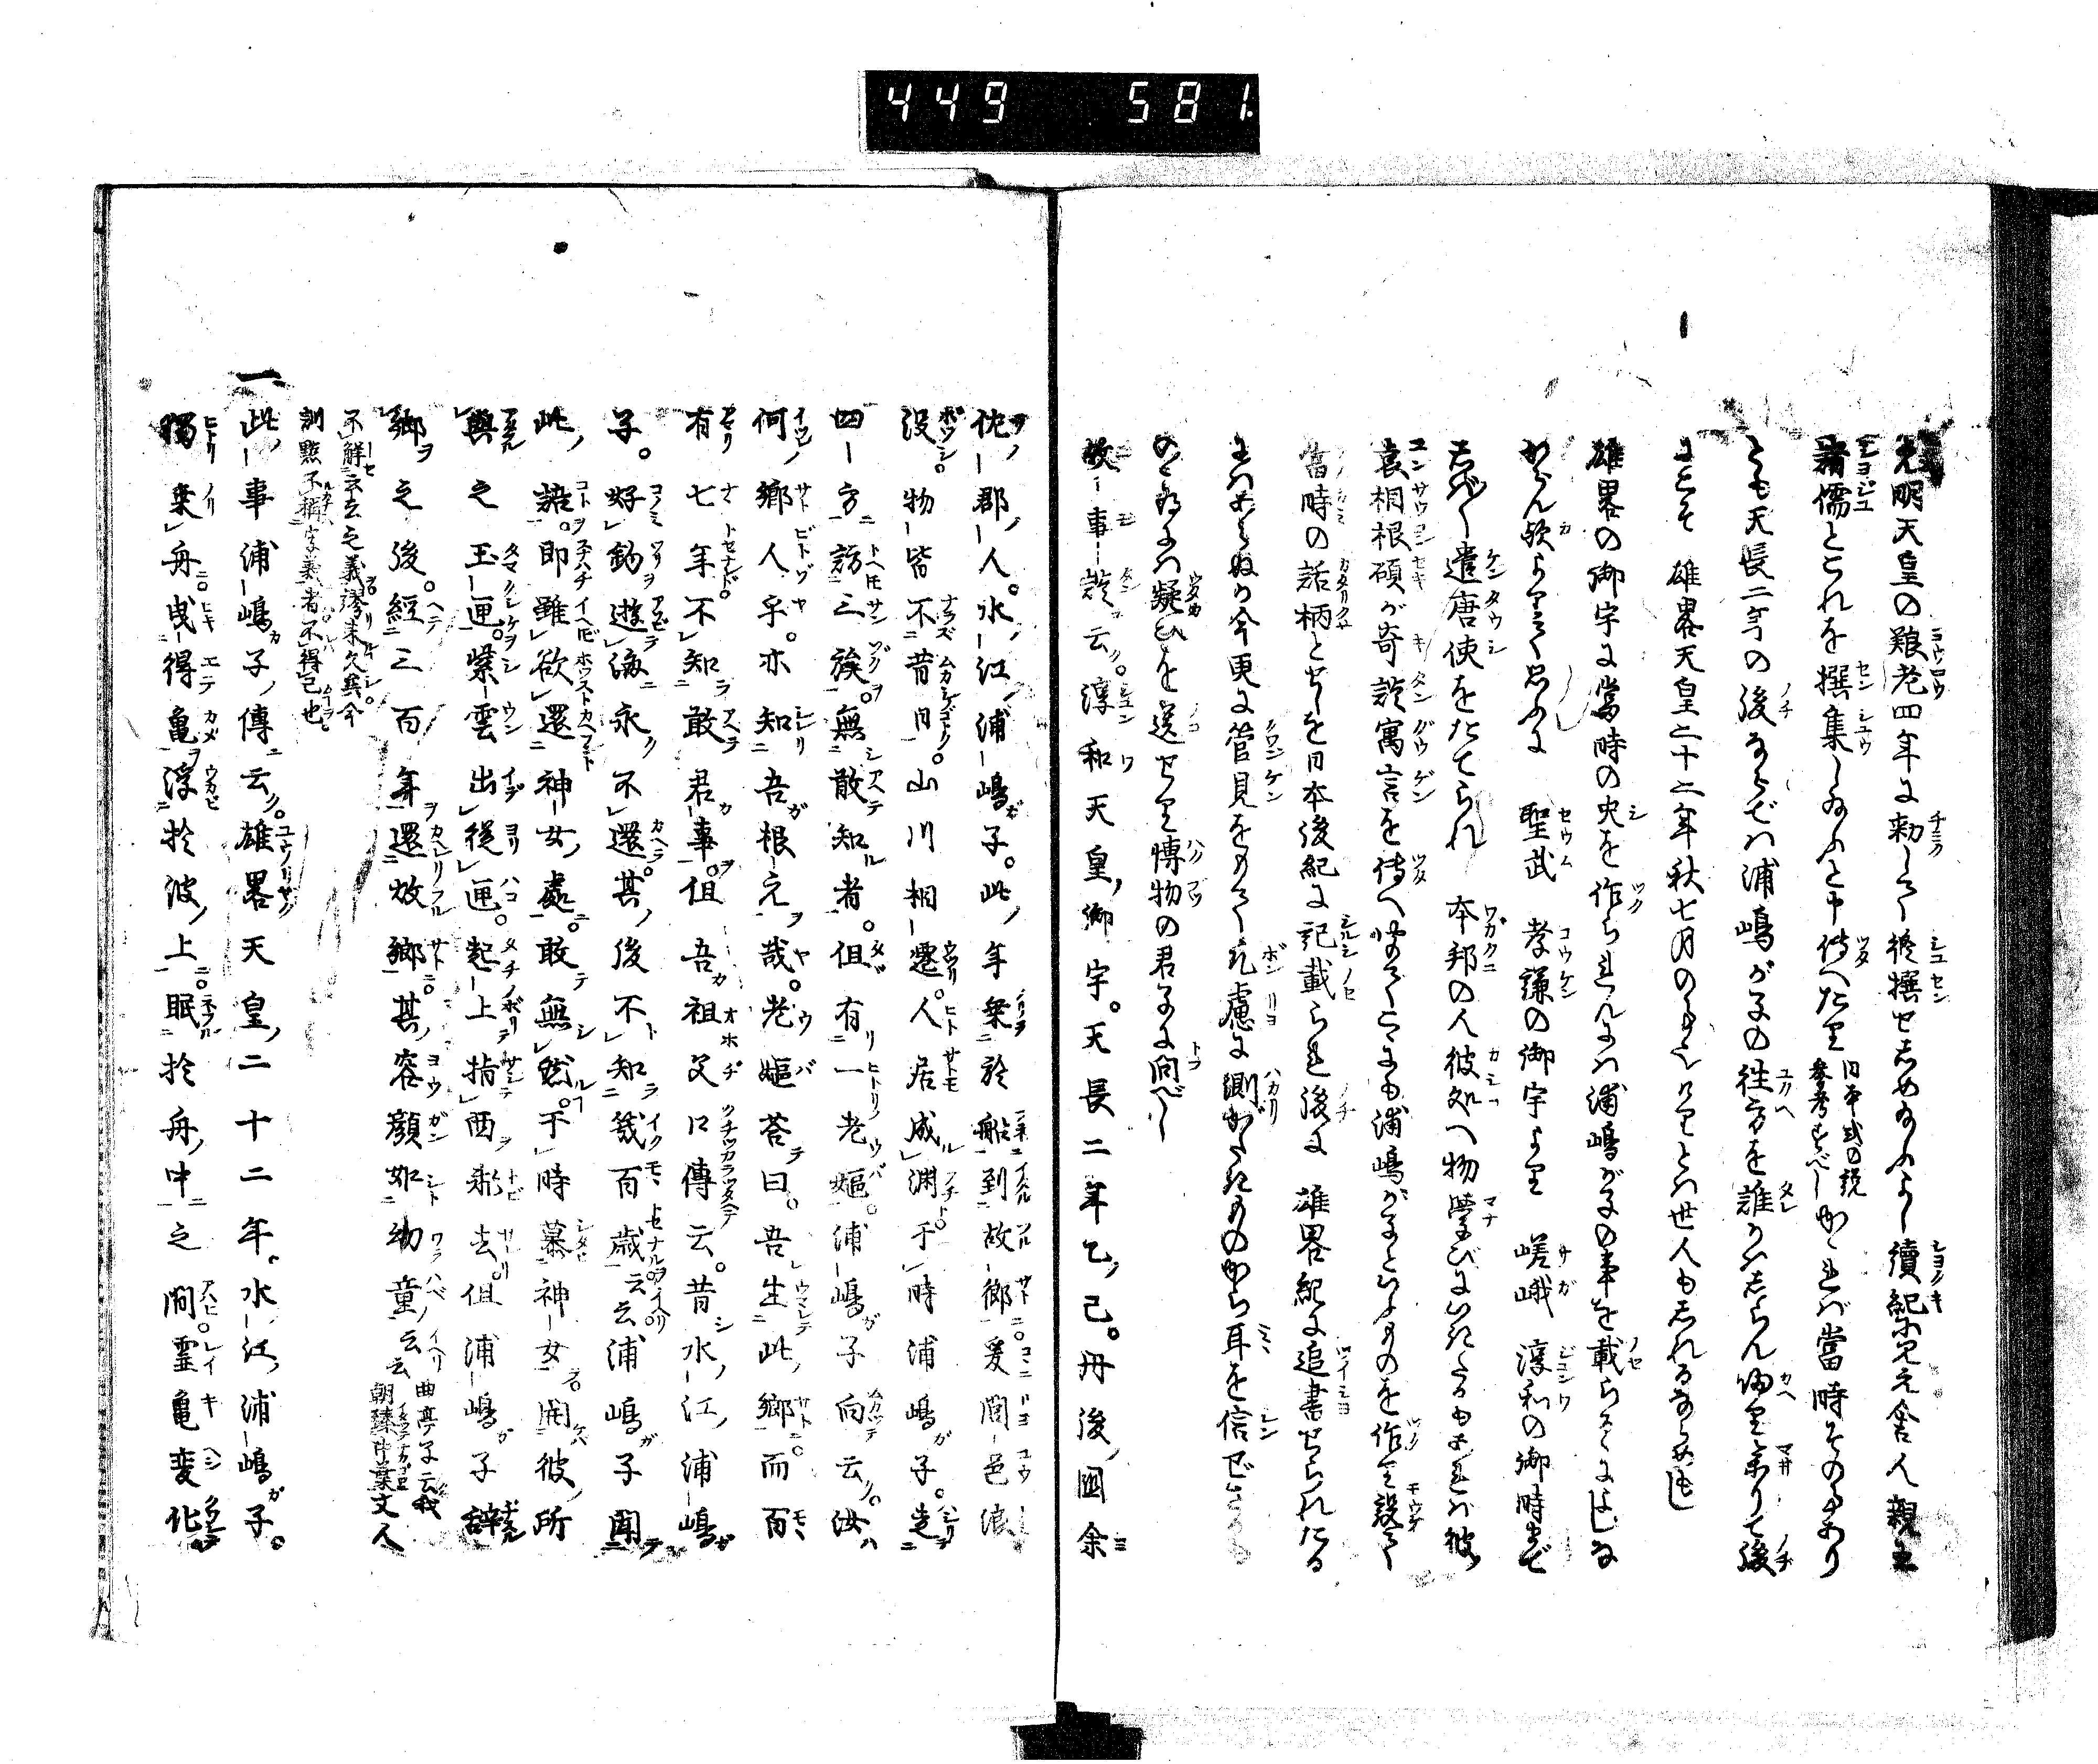 449 581.
元明天皇の養老四年に勅して修撰せしめ給ふよし續紀に見え舎人親王
諸儒とこれを撰集し給ふと申傳へたり 旧本或の説参考すべし かゝれば當時その事あり
とも天長二年の後ならでは浦嶋が子の往方を誰かはしらん帰り来りて後
にこそ 雄畧天皇二十二年秋七月の事なりとは世人もしれるなるめれ
雄畧の御宇に當時の史を作られんには浦嶋が子の事を載らるゝによしな
からん歟よりて思ふに 聖武 孝謙の御宇より 嵯峨 淳和の御時まで
しば〳〵遣唐使をたてられ 本邦の人彼処へ物學びにいたるもあれば彼
袁相根碩が奇談寓言を傳へ
當時の話柄とせしを日本後紀に記載られ後に 雄畧紀に追書せられたる
にはあらぬか今更に管見をもて凡慮に測がたきものから耳を信ぜざる
のみ疑ひを送せり博物の君子に問べし
故事談云。淳和天皇御宇。天長二年乙巳。丹後國余
佐郡人。水江浦嶋子。此年乗於船到故郷。爰閭邑浪
没。物皆不昔日。山川相遷。人居成渕。于時浦嶋子。走
四方訪三族。無敢知者。但有一老嫗。浦嶋子向云。汝
何郷人乎。亦知吾根元哉。老嫗荅曰。吾生此郷而百
有七年不知敢君事。但吾祖父口傳云。昔水江浦嶋
子。好釣遊海永不還其後不知幾百歳云云浦嶋子聞
此談。即雖欲還神女處。敢無然。于時慕神女。開彼所
與之玉匣。紫雲出從匣。起上指西飛去。但浦嶋子辭
郷之後。經三百年還故郷其容顔如幼童云云 曲亭子云我朝臻中葉文人
不解云云之義謬来久矣今訓點不稱字義者不得已也
一 此事浦嶋子傳云。雄畧天皇二十二年。水江浦嶋子。
獨乗舟曳得亀浮於波上眠於舟中之間霊亀変化